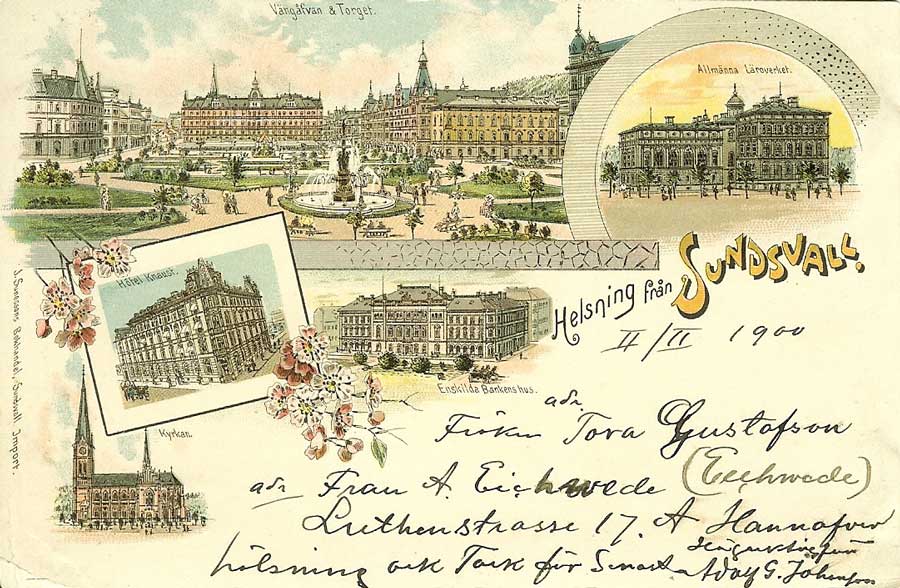 Vängåfvan & Torget.
Allmänna Läroverket.
Hôtel Knaust.
Helsning från SUNDSVALL.
II/II 1900
Enskilda Bankens hus.
Kyrkan.
J. Svensons Bokhandel, Sundsvall Import
adr.
Fröken Tora Gustafson
adr Frau A. Eichwede (Eichwede)
Luthenstrasse 17. A Hannover
hälsning och Tack för
Adolf G.